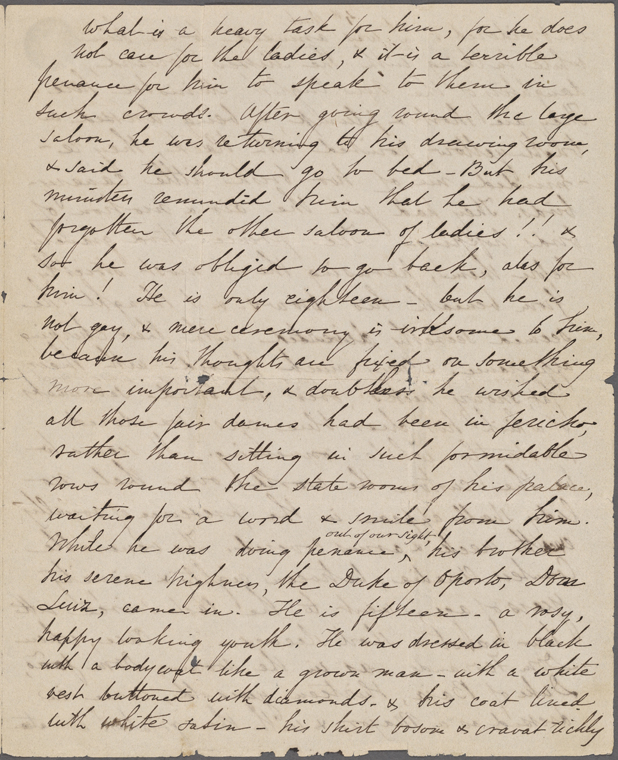 what is a heavy task for him, for he does
not care for the ladies, & it is a terrible
penance for him to speak to them in
such crowds. After going round the large
saloon, he was returning to his drawing room,
& said he should go to bed - But his
ministers reminded him that he had
forgotten the other saloon of ladies!! &
so he was obliged to go back, alas for
him! He is only eighteen - but he is
not gay, & mere ceremony is irksome to him,
because his thoughts are fixed on something
more important, & doubtless he wished
all those fair dames had been in Jericho,
rather than sitting in such formidable
rows round the state rooms of his palace,
waiting for a word & smile from him.
out of our sight
While he was doing penance, his brother
his serene highness, the Duke of Oporto, Dom
Luiz, came in. He is fifteen - a rosy,
happy looking youth. He was dressed in black
with a bodycoat like a grown man - with a white
vest buttoned with diamonds - & his coat lined
with white satin - his shirt bosom & cravat richly